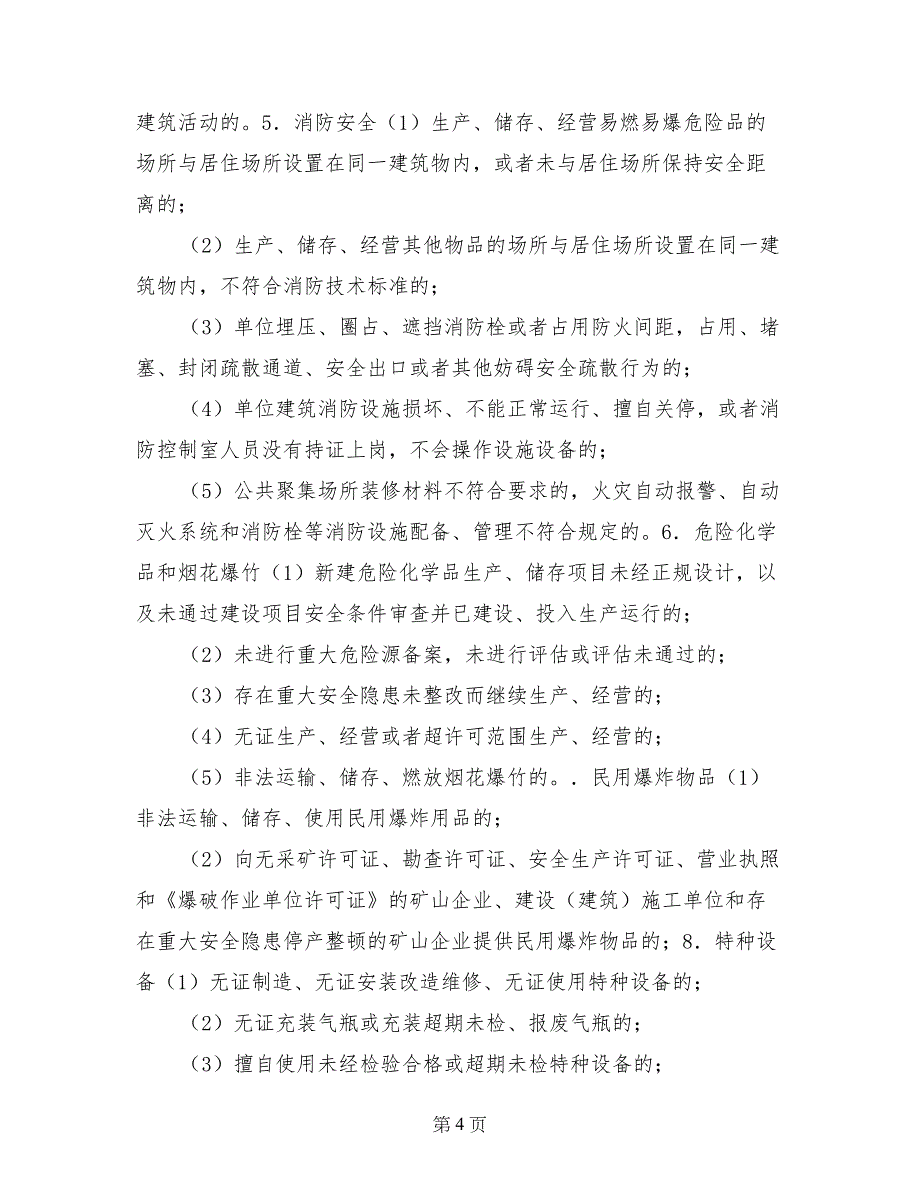 建筑活动的。5．消防安全（1）生产、储存、经营易燃易爆危险品的
场所与居住场所设置在同一建筑物内，或者未与居住场所保持安全距
离的；
（2）生产、储存、经营其他物品的场所与居住场所设置在同一建
筑物内，不符合消防技术标准的；
（3）单位埋压、圈占、遮挡消防栓或者占用防火间距，占用、堵
塞、封闭疏散通道、安全出口或者其他妨碍安全疏散行为的；
（4）单位建筑消防设施损坏、不能正常运行、擅自关停，或者消
防控制室人员没有持证上岗，不会操作设施设备的；
（5）公共聚集场所装修材料不符合要求的，火灾自动报警、自动
灭火系统和消防栓等消防设施配备、管理不符合规定的。6．危险化学
品和烟花爆竹（1）新建危险化学品生产、储存项目未经正规设计，以
及未通过建设项目安全条件审查并已建设、投入生产运行的；
（2）未进行重大危险源备案，未进行评估或评估未通过的；
（3）存在重大安全隐患未整改而继续生产、经营的；
（4）无证生产、经营或者超许可范围生产、经营的；
（5）非法运输、储存、燃放烟花爆竹的。．民用爆炸物品（1）
非法运输、储存、使用民用爆炸用品的；
（2）向无采矿许可证、勘查许可证、安全生产许可证、营业执照
和《爆破作业单位许可证》的矿山企业、建设（建筑）施工单位和存
在重大安全隐患停产整顿的矿山企业提供民用爆炸物品的；8．特种设
备（1）无证制造、无证安装改造维修、无证使用特种设备的；
（2）无证充装气瓶或充装超期未检、报废气瓶的；
（3）擅自使用未经检验合格或超期未检特种设备的；
第 4 页